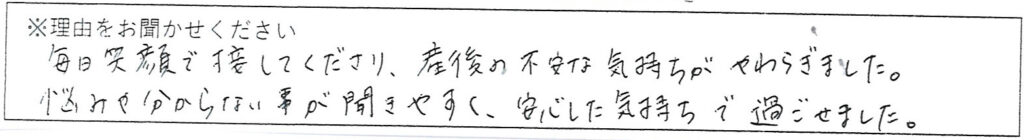 ※理由をお聞かせください
毎日笑顔で接してくださり、産後の不安な気持ちがやわらぎました。
悩みや分からない事が聞きやすく、安心した気持ちで過ごせました。